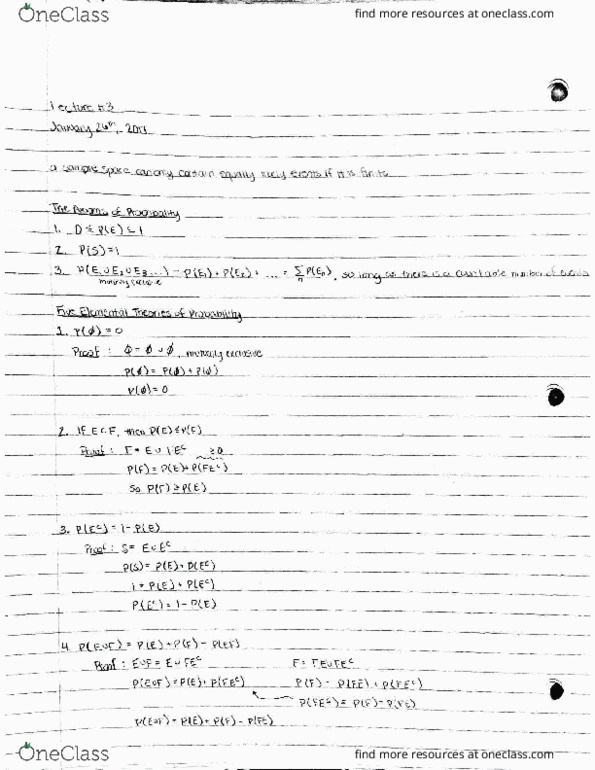 OneClass
find more resources at oneclass.com
Lecture #3
January 26th,
a sample space can only contain equally likely events if it is finite
The Axioms of Probability
1. 0 ≤ P(E) ≤ 1
2. P(S) = 1
3. P(E₁ ∪ E₂ ∪ E₃ ...) = P(E₁) + P(E₂) + ... = Σ P(Eₙ), so long as there is a countable number of events
n
mutually exclusive
Five Elemental Theories of Probability
1. P(∅) = 0
Proof: ∅ = ∅ ∪ ∅, mutually exclusive
P(∅) = P(∅) + P(∅)
P(∅) = 0
2. If E ⊂ F, then P(E) ≤ P(F)
Proof: F = E ∪ FEᶜ ≥ 0
P(F) = P(E) + P(FEᶜ)
So P(F) ≥ P(E)
3. P(Eᶜ) = 1 - P(E)
Proof: S = E ∪ Eᶜ
P(S) = P(E) + P(Eᶜ)
1 = P(E) + P(Eᶜ)
P(Eᶜ) = 1 - P(E)
4. P(E∪F) = P(E) + P(F) - P(EF)
Proof: E∪F = E ∪ FEᶜ F = FE ∪ FEᶜ
P(E∪F) = P(E) + P(FEᶜ) P(F) = P(FE) + P(FEᶜ)
P(FEᶜ) = P(F) - P(FE)
P(E∪F) = P(E) + P(F) - P(FE)
OneClass
find more resources at oneclass.com